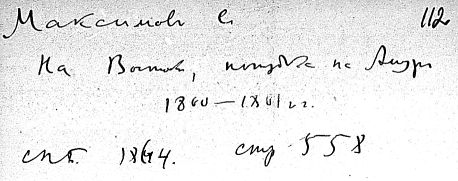 Максимов С. 112
На Восток, поездка на Амур
1860—1861 гг.
СПб. 1864. стр 558